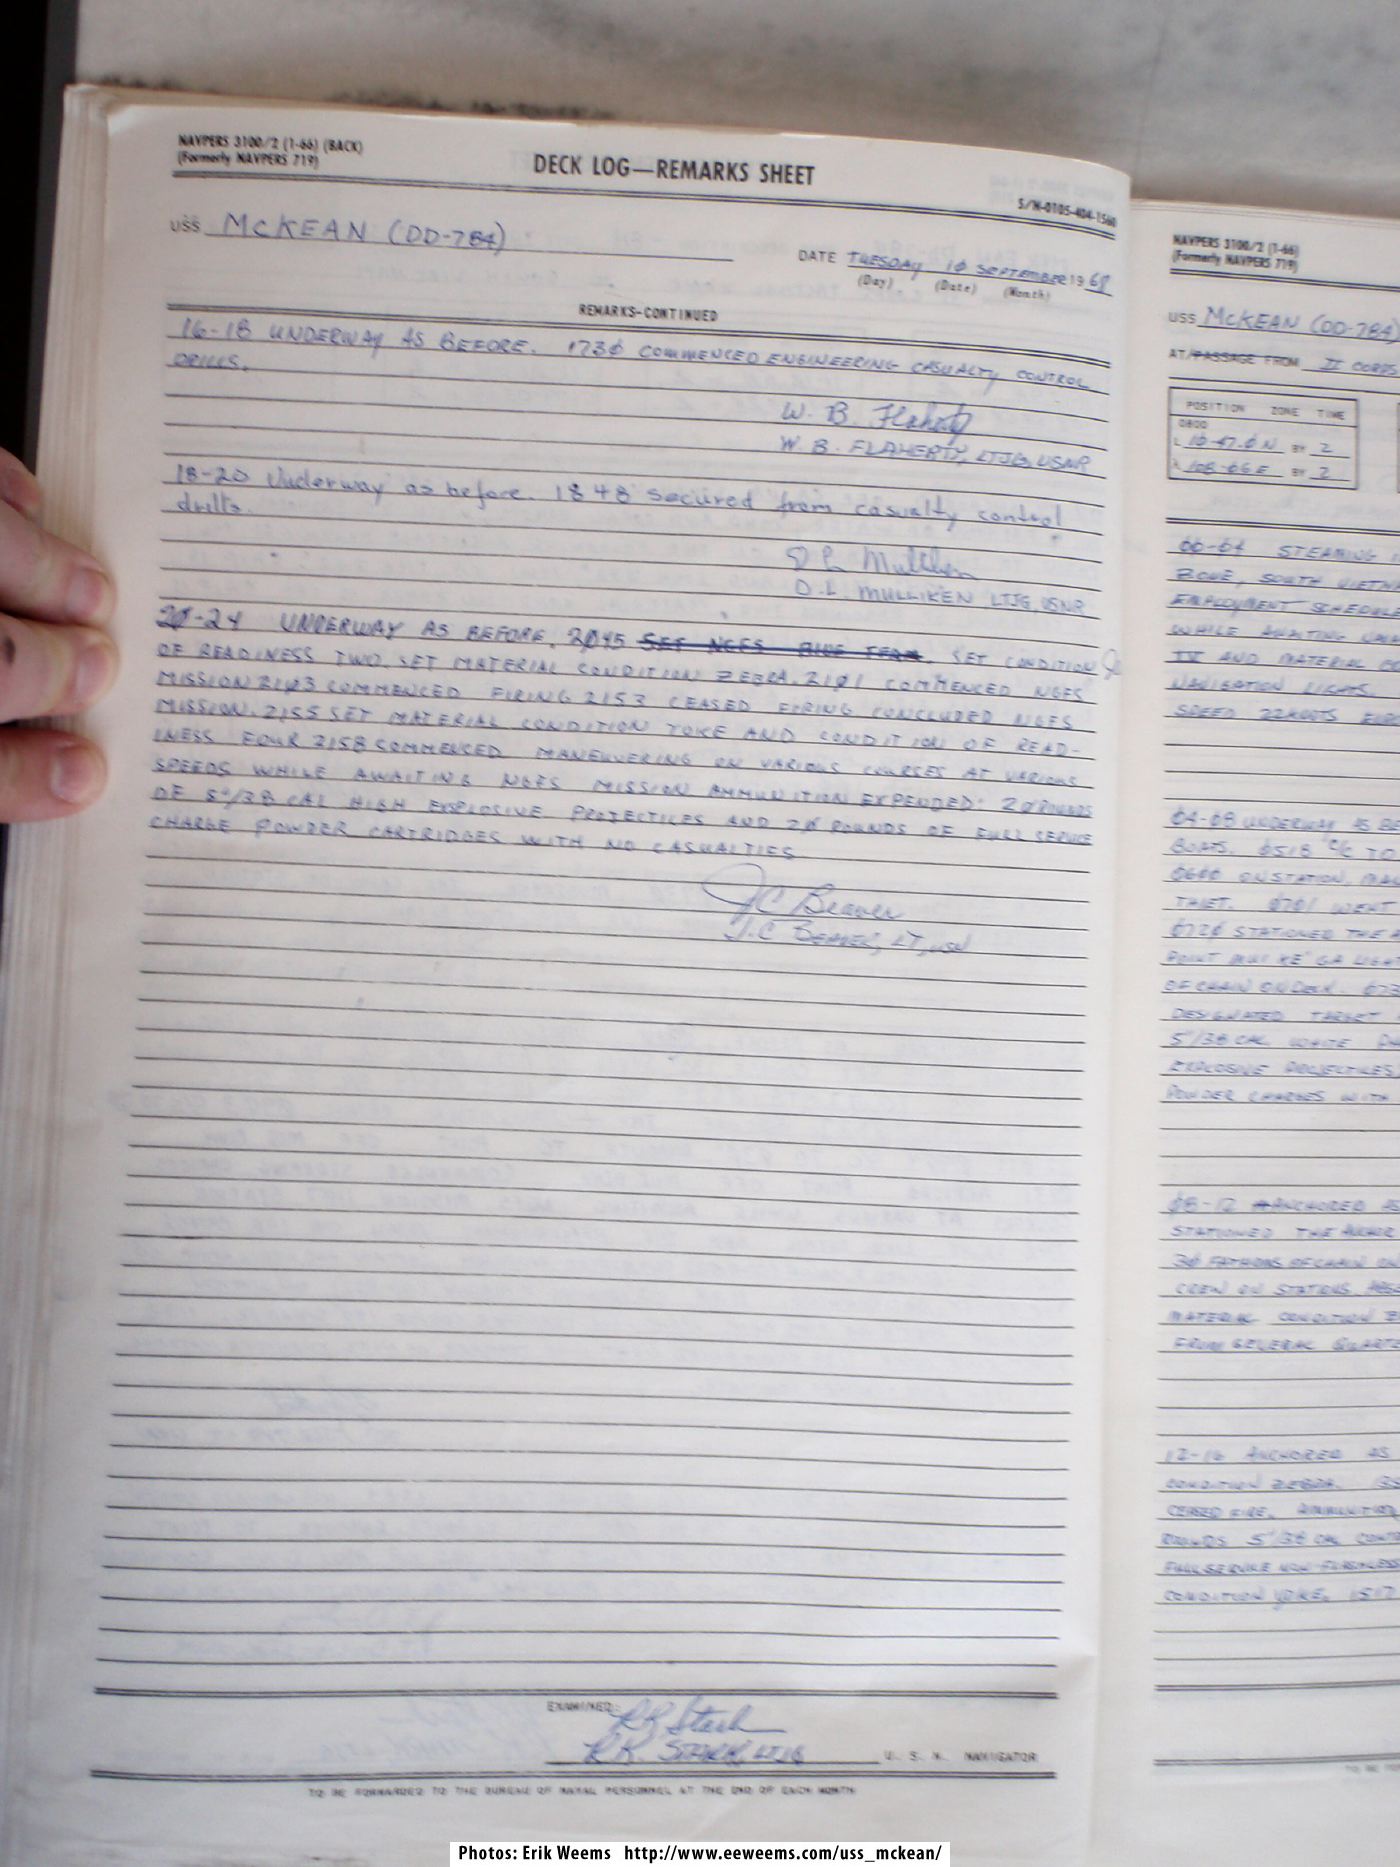 NAVPERS 3100/2 (1-66) (BACK)
(Formerly NAVPERS 719)
DECK LOG—REMARKS SHEET
S/N-0105-404-1560
USS McKEAN (DD-784)
DATE TUESDAY 10 SEPTEMBER 1968
(Day) (Date) (Month)
REMARKS-CONTINUED
16-18 UNDERWAY AS BEFORE. 1730 COMMENCED ENGINEERING CASUALTY CONTROL
DRILLS.
W. B. Flaherty
W. B. FLAHERTY, LTJG, USNR
18-20 Underway as before. 1848 secured from casualty control
drills.
D L Mulliken
D. L. MULLIKEN LTJG, USNR
20-24 UNDERWAY AS BEFORE. 2045 SET NGFS BLUE TEAM. SET CONDITION
OF READINESS TWO, SET MATERIAL CONDITION ZEBRA. 2101 COMMENCED NGFS
MISSION 2103 COMMENCED FIRING 2153 CEASED FIRING CONCLUDED NGFS
MISSION. 2155 SET MATERIAL CONDITION YOKE AND CONDITION OF READ-
INESS FOUR 2158 COMMENCED MANEUVERING ON VARIOUS COURSES AT VARIOUS
SPEEDS WHILE AWAITING NGFS MISSION AMMUNITION EXPENDED: 20 ROUNDS
OF 5"/38 CAL HIGH EXPLOSIVE PROJECTILES AND 20 ROUNDS OF FULL SERVICE
CHARGE POWDER CARTRIDGES WITH NO CASUALTIES
JC Beaver
J.C BEAVER, LT, USN
EXAMINED:
RR Stark
R.R. STARK, LTJG U. S. N. NAVIGATOR
TO BE FORWARDED TO THE BUREAU OF NAVAL PERSONNEL AT THE END OF EACH MONTH
NAVPERS 3100/2 (1-66)
(Formerly NAVPERS 719)
USS McKEAN (DD-784)
AT/PASSAGE FROM II CORPS
POSITION ZONE TIME
0800
L 10-47.0 N BY 2
λ 108-06 E BY 2
00-04 STEAMING
BONE, SOUTH
EMPLOYMENT SCHEDULE
WHILE AWAITING
IV AND MATERIAL
NAVIGATION LIGHTS.
SPEED 22 KNOTS
04-08 UNDERWAY AS
BOATS. 0518 C/C TO
0600 ON STATION,
THIET. 0701 WENT
0720 STATIONED THE
POINT MUI KE GA
OF CHAIN ON DECK.
DESIGNATED TARGET
5"/38 CAL WHITE
EXPLOSIVE PROJECTILES,
POWDER CHARGES WITH
08-12 ANCHORED AS
STATIONED THE ANCHOR
30 FATHOMS OF CHAIN ON
CREW ON STATIONS.
MATERIAL CONDITION
FROM GENERAL
12-16 ANCHORED AS
CONDITION ZEBRA.
CEASED FIRE.
ROUNDS 5"/38 CAL
FULL SERVICE NON-FLASHLESS
CONDITION YOKE. 1517
Photos: Erik Weems http://www.eeweems.com/uss_mckean/